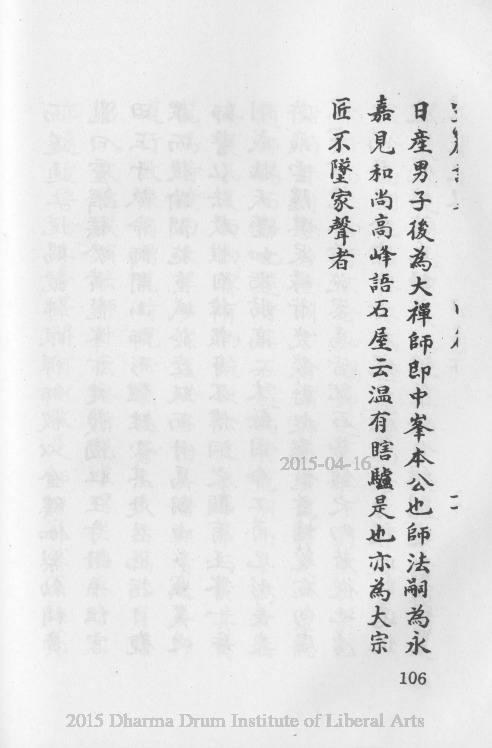 日產男子後為大禪師即中峯本公也師法嗣為永
嘉見和尚高峰語石屋云溫有瞎驢是也亦為大宗
匠不墜家聲者
106
2015-04-16
2015 Dharma Drum Institute of Liberal Arts